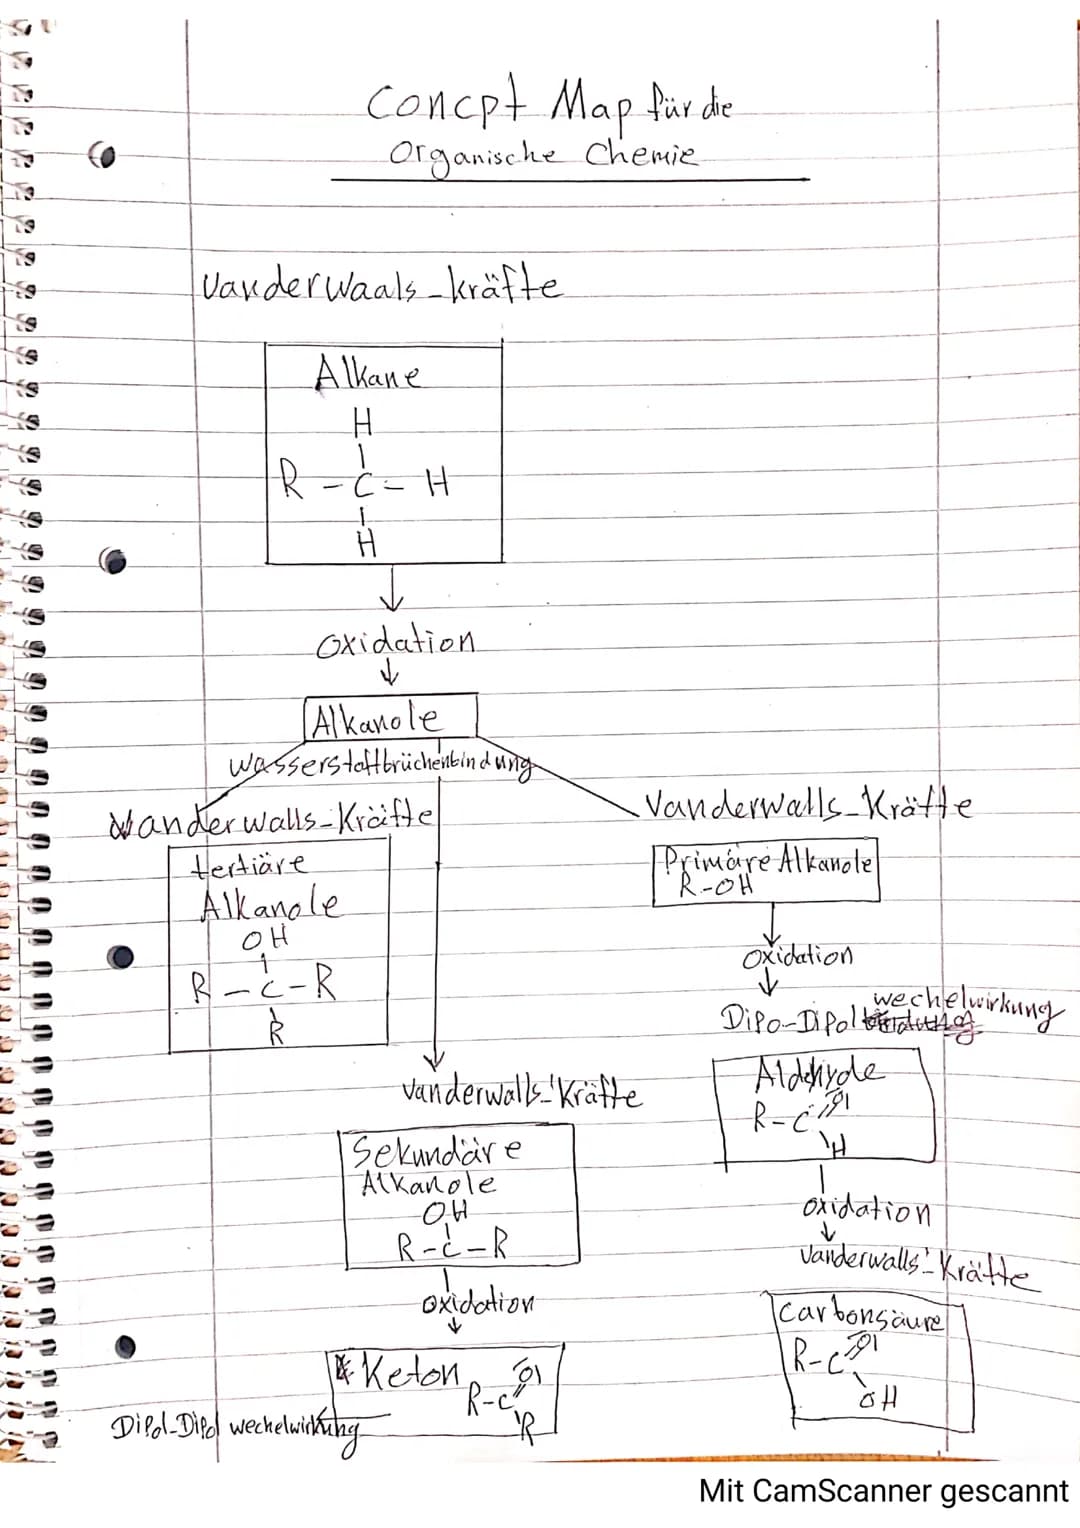 Concpt Map für die
Organische Chemie
Vanderwaals-kräfte
Alkane
H
R - C - H
H
Oxidation
Alkanole
wasserstoffbrüchenbindung
Vanderwalls-Kräfte
tertiäre
Alkanole
OH
R - C - R
R
Vanderwalls-Kräfte
Primäre Alkanole
R-OH
Oxidation
wechelwirkung
Dipo-Dipol
Aldehyde
R-C O
H
Oxidation
Vanderwalls-Kräfte
Carbonsäure
R-C O
OH
Vanderwalls-Kräfte
Sekundäre
Alkanole
OH
R-C-R
Oxidation
Keton
R-C O
R
Dipol-Dipol wechelwirkung
Mit CamScanner gescannt